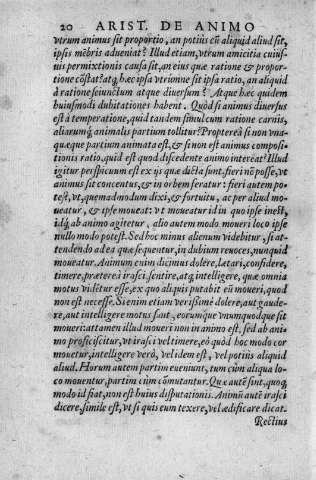 20 ARIST. DE ANIMO
vtrum animus sit proportio, an potiùs cũ aliquid aliud sit,
ipsis mẽbris adueniat? Illud etiam, vtrum amicitia cuius-
uis permixtionis causa sit, an eius quæ ratione & propor-
tione cõstat? atq, hæc ipsa vtrúmne sit ipsa ratio, an aliquid
à ratione seiunctum atque diuersum? Atque hæc quidem
huiusmodi dubitationes habent. Quòd si animus diuersus
est à temperatione, quid tandem simulcum ratione carnis,
aliarumq́ animalis partium tollitur? Propterea si non vna-
quæque partium animata est, & si non est animus composi-
tionis ratio, quid est quod discedente animo intereat? Illud
igitur perspicuum est ex ijs quæ dicta sunt, fieri nõ posse, vt
animus sit concentus, & in orbem feratur: fieri autem po-
test, vt, quemadmodum dixi, & fortuitu, ac per aliud mo-
ueatur, & ipse moueat: vt moueatur id in quo ipse inest,
idq́ ab animo agitetur, alio autem modo moueri loco ipse
nullo modo potest. Sed hoc minus alienum videbitur, si at-
tendendo ad ea quæ sequentur, in dubium reuoces, nunquid
moueatur. Animum enim dicimus dolere, lætari, confidere,
timere, prætereà irasci, sentire, atq, intelligere, quæ omnia
motus vidẽtur esse, ex quo aliquis putabit eũ moueri, quod
non est necesse. Si enim etiam verissimè dolere, aut gaude-
re, aut intelligere motus sunt, eorumque vnumquodque sit
moueri: attamen illud moueri non in animo est, sed ab ani-
mo proficiscitur, vt irasci vel timere, eò quòd hoc modo cor
mouetur, intelligere verò, vel idem est, vel potiùs aliquid
aliud. Horum autem partim eueniunt, tum cùm aliqua lo-
co mouentur, partim cùm cõmutantur. Quæ autẽ sint, quoq,
modo id fiat, non est huius disputationis. Animũ autẽ irasci
dicere, simile est, vt si quis eum texere, vel ædificare dicat.
Rectius